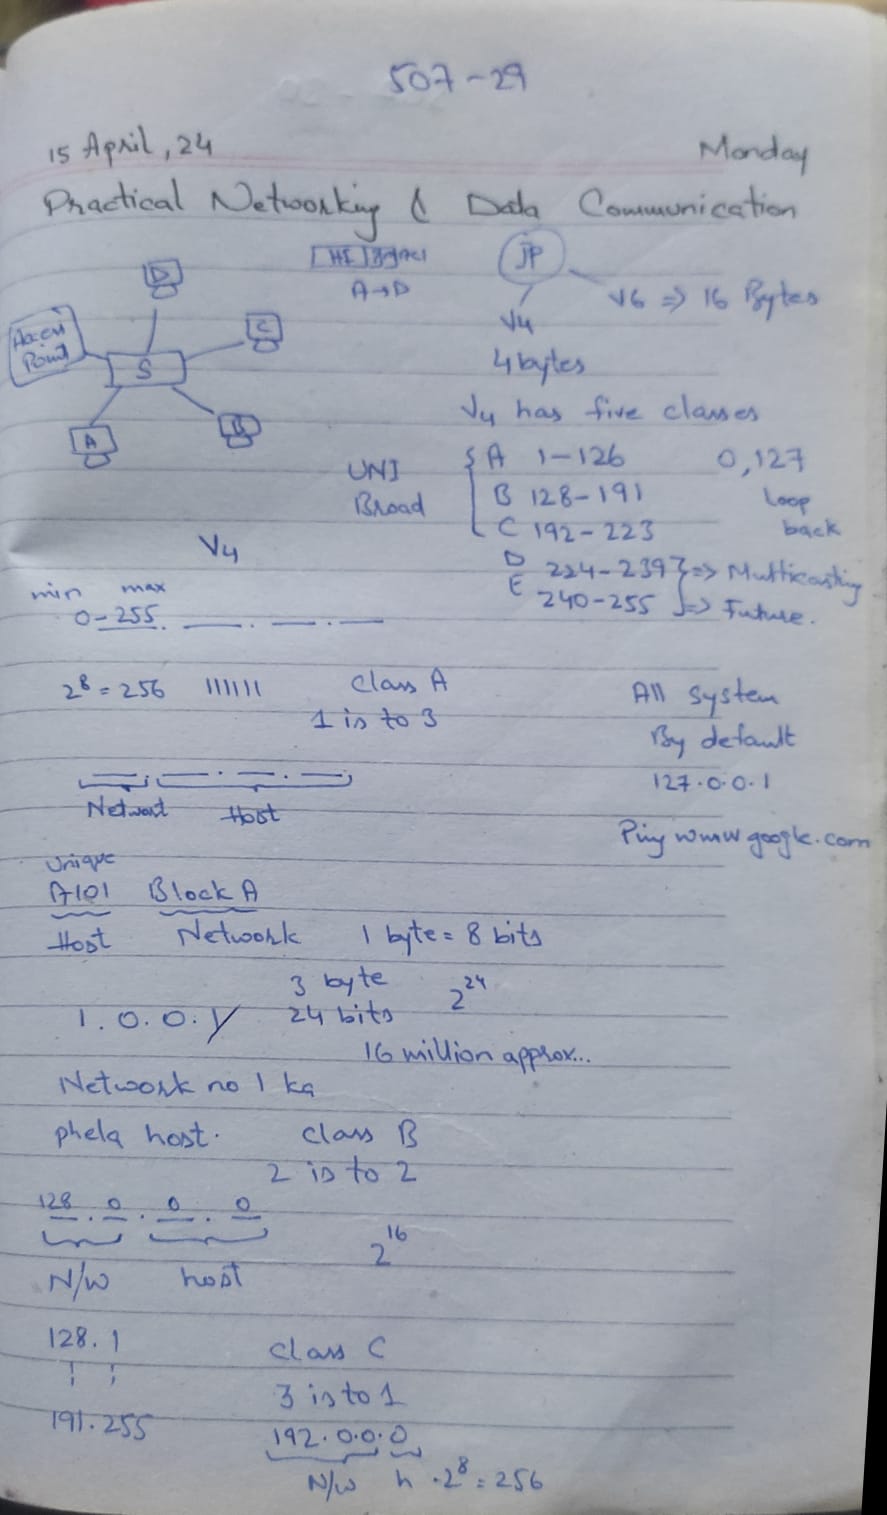 507-29
15 April, 24 Monday
Practical Networking & Data Communication
D
C
Access
Point
S
A
B
HI
A→D
IP
V4
V6 => 16 Bytes
4 bytes
V4 has five classes
UNI
Broad
A 1-126
B 128-191
C 192-223
D 224-239 => Multicasting
E 240-255 => Future.
0,127
Loop
back
V4
min max
0-255. __. __. __
2^8 = 256 111111
Class A
1 is to 3
Network Host
All system
By default
127.0.0.1
Ping www google.com
Unique
A101 Block A
Host Network
1 byte = 8 bits
3 byte
24 bits
2^24
1.0.0.
16 million approx...
Network no 1 ka
phela host.
Class B
2 is to 2
128.0.0.0
N/W host
2^16
128.1
191.255
Class C
3 is to 1
192.0.0.0
N/W h .2^8 = 256